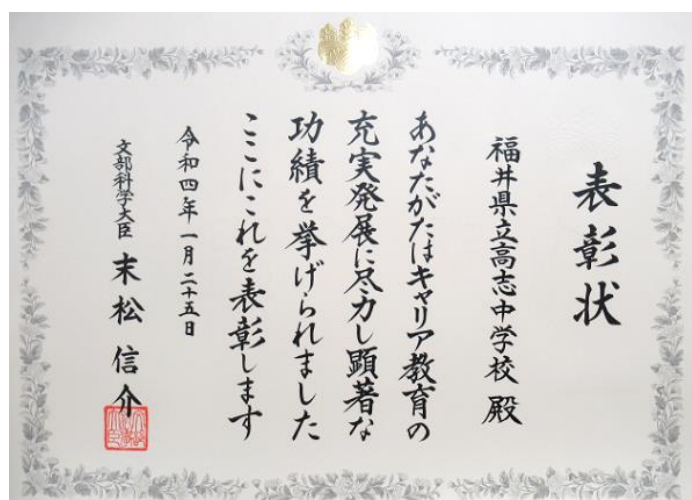 表彰状
福井県立高志中学校 殿
あなたがたはキャリア教育の
充実発展に尽力し顕著な
功績を挙げられました
ここにこれを表彰します
令和四年一月二十五日
文部科学大臣 末松信介